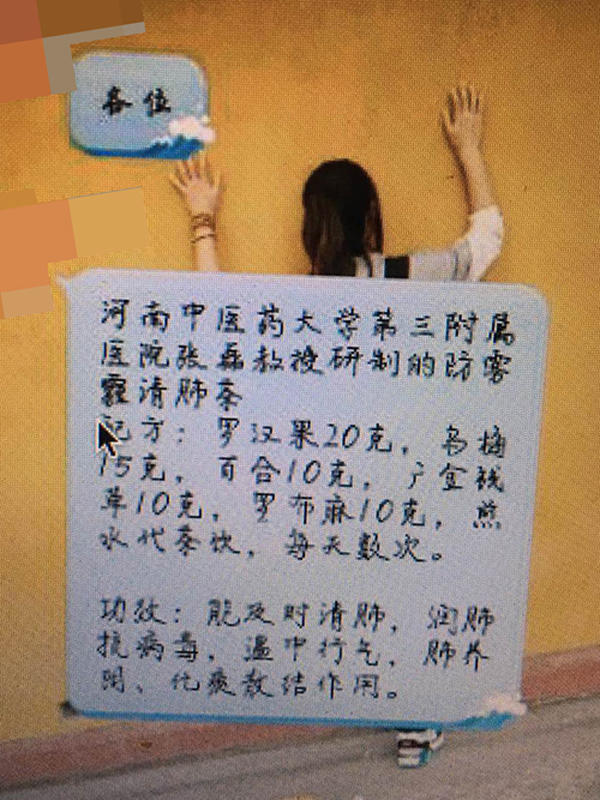 各位
河南中医药大学第三附属
医院张磊教授研制的防雾
霾清肺茶
配方：罗汉果20克，乌梅
15克，百合10克，广金钱
草10克，罗布麻10克，煎
水代茶饮，每天数次。
功效：能及时清肺，润肺
抗病毒，温中行气，肺养
阴、化痰散结作用。